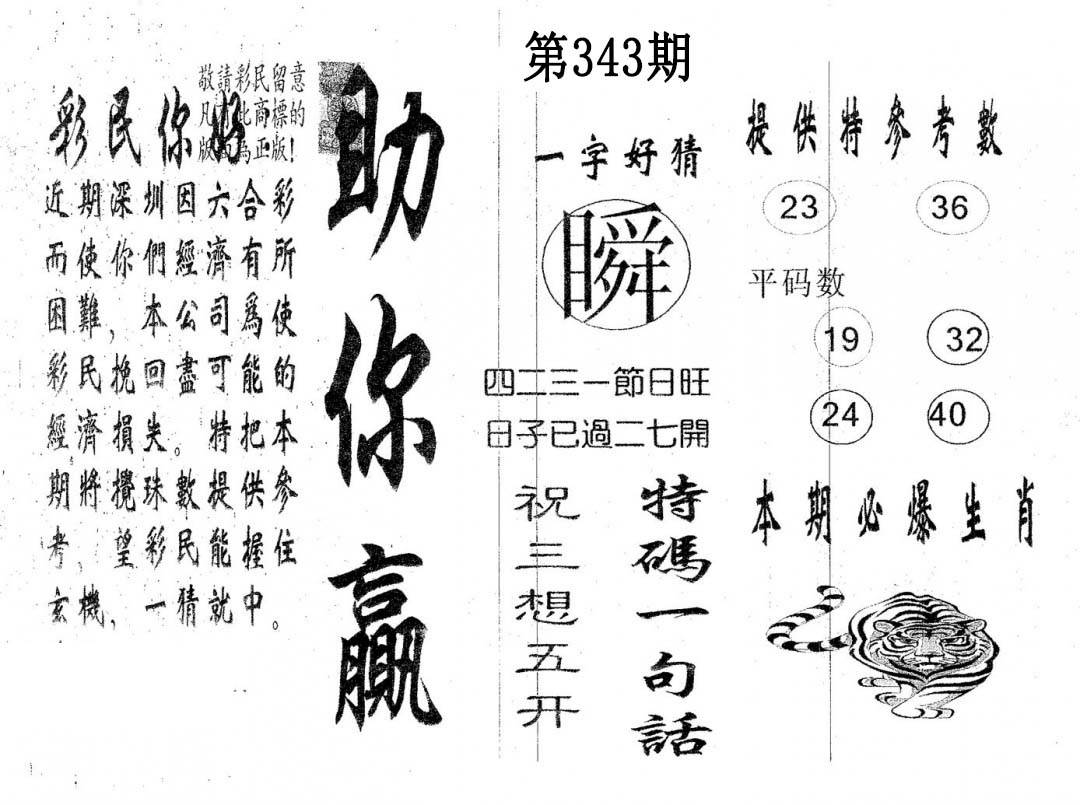 第343期
敬請彩民留意
凡 此商標的
版 為正版!
彩民你好
近期深圳因六合彩
而使你們經濟有所
困難,本公司爲使
彩民挽回盡可能的
經濟損失。特把本
期將攪珠數提供參
考,望彩民能握住
玄機,一猜就中。
助你贏
一字好猜
瞬
四二三一節日旺
日子已過二七開
特碼一句話
祝三想五开
提供特參考數
23 36
平码数
19 32
24 40
本期必爆生肖